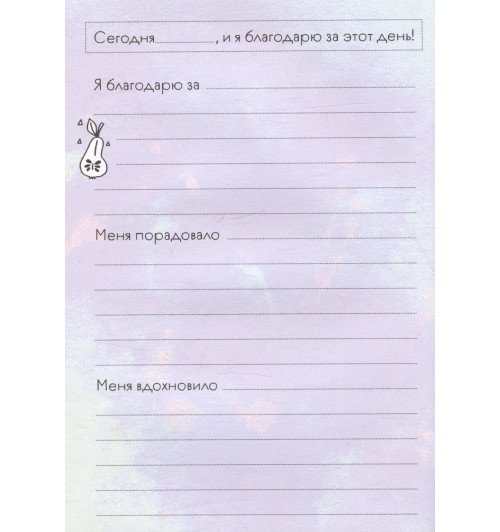 Сегодня________, и я благодарю за этот день!
Я благодарю за
Меня порадовало
Меня вдохновило